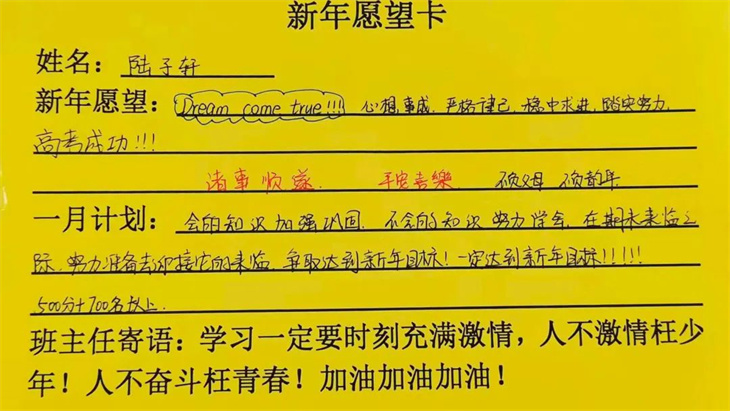 新年愿望卡
姓名：陆子轩
新年愿望：Dream come true!!! 心想事成，严格律己，稳中求进，踏实努力，
高考成功!!!
诸事顺遂. 平安喜樂 不负父母 不负韶年.
一月计划：会的知识加强巩固，不会的知识努力学会，在期末来临之
际，努力准备去迎接它的来临，争取达到新年目标！一定达到新年目标!!!!!
500分+700名以上.
班主任寄语：学习一定要时刻充满激情，人不激情枉少
年！人不奋斗枉青春！加油加油加油！